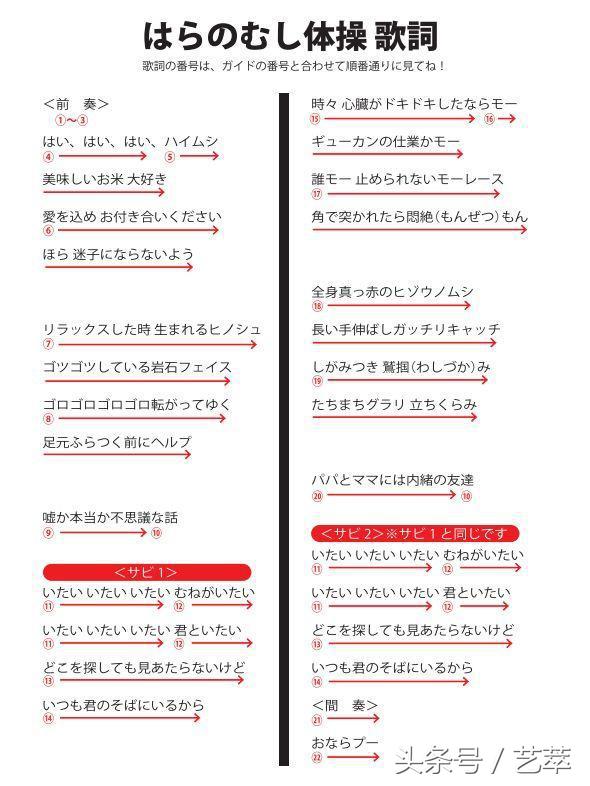 はらのむし体操 歌詞
歌詞の番号は、ガイドの番号と合わせて順番通りに見てね！
＜前　奏＞
①〜③
はい、はい、はい、ハイムシ
④ ⑤
美味しいお米 大好き
愛を込め お付き合いください
⑥
ほら 迷子にならないよう
リラックスした時 生まれるヒノシュ
⑦
ゴツゴツしている岩石フェイス
ゴロゴロゴロゴロ転がってゆく
⑧
足元ふらつく前にヘルプ
嘘か本当か不思議な話
⑨ ⑩
＜サビ 1＞
いたい いたい いたい むねがいたい
⑪ ⑫
いたい いたい いたい 君といたい
⑪ ⑫
どこを探しても見あたらないけど
⑬
いつも君のそばにいるから
⑭
時々 心臓がドキドキしたならモー
⑮ ⑯
ギューカンの仕業かモー
誰モー 止められないモーレース
⑰
角で突かれたら悶絶（もんぜつ）もん
全身真っ赤のヒゾウノムシ
⑱
長い手伸ばしガッチリキャッチ
しがみつき 鷲掴（わしづか）み
⑲
たちまちグラリ 立ちくらみ
パパとママには内緒の友達
⑳ ⑩
＜サビ 2＞※サビ 1 と同じです
いたい いたい いたい むねがいたい
⑪ ⑫
いたい いたい いたい 君といたい
⑪ ⑫
どこを探しても見あたらないけど
⑬
いつも君のそばにいるから
⑭
＜間　奏＞
㉑
おならプー
㉒
头条号 / 艺萃